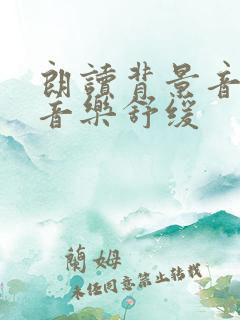 朗讀背景音
音樂舒缓
蘭姆
未经同意禁止转载